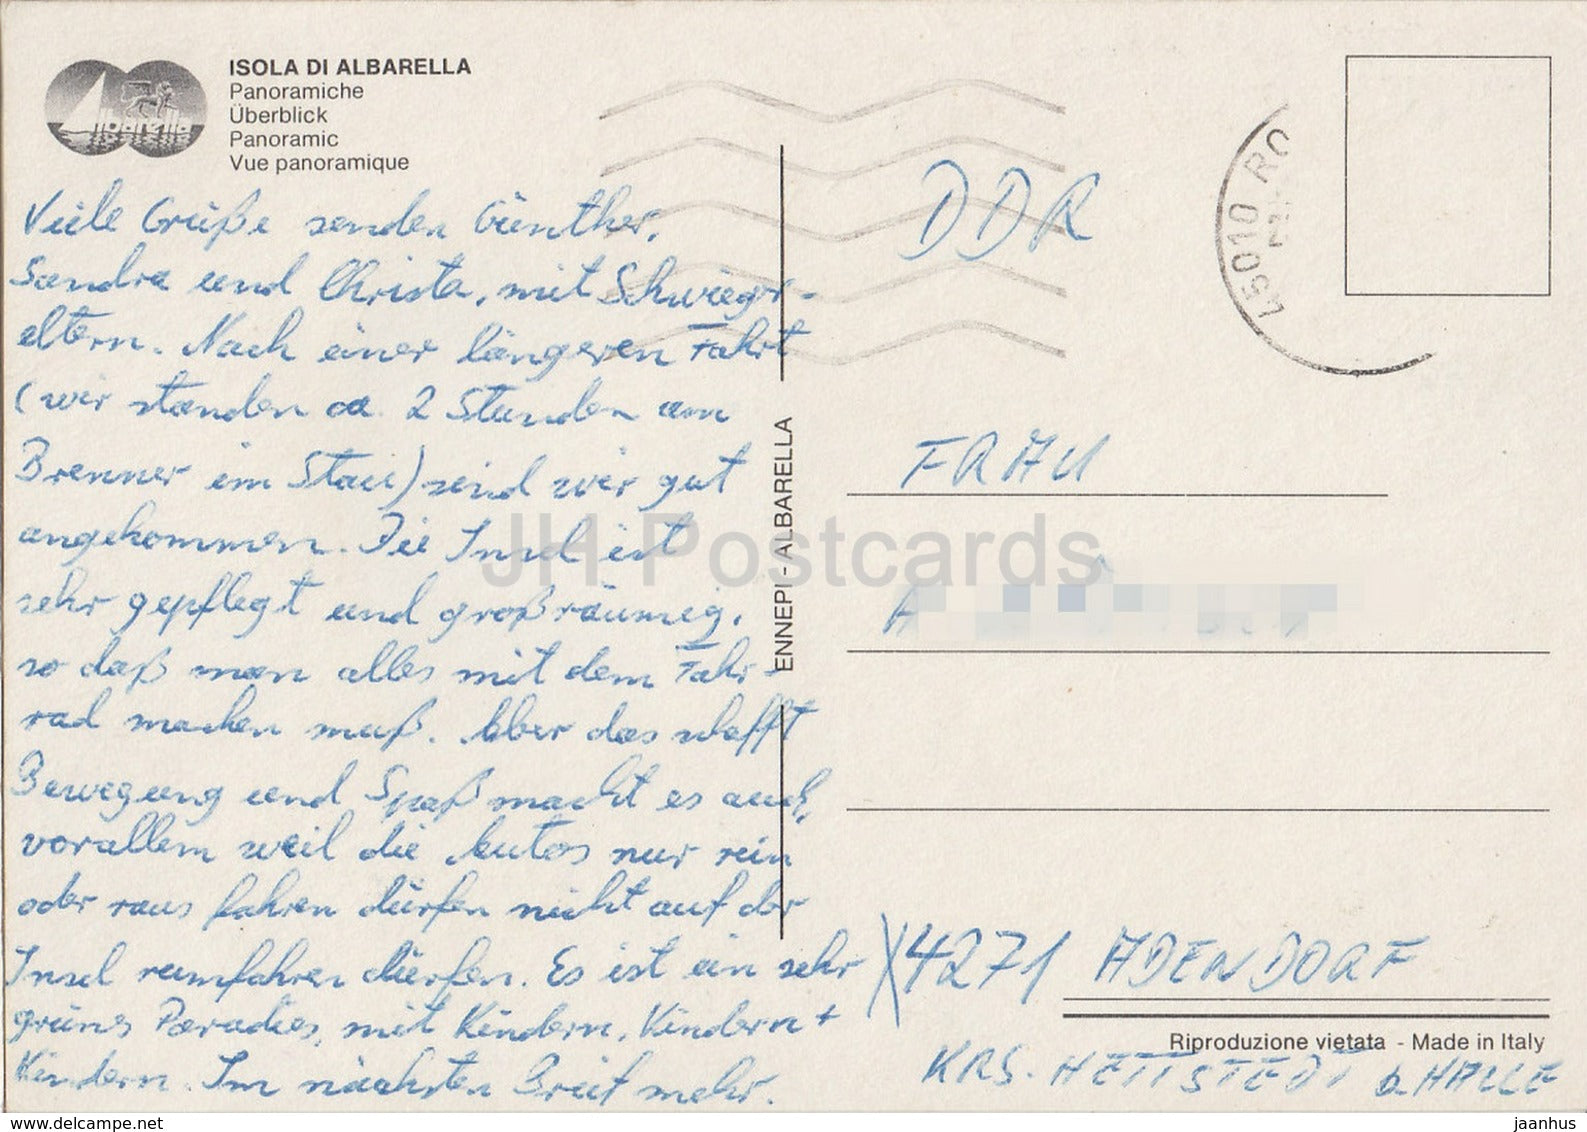 ISOLA DI ALBARELLA
Panoramiche
Überblick
Panoramic
Vue panoramique
albarella
Viele Grüße senden Günther,
Sandra und Christa, mit Schwieger-
eltern. Nach einer längeren Fahrt
(wir standen ca. 2 Stunden am
Brenner im Stau) sind wir gut
angekommen. Die Insel ist
sehr gepflegt und großräumig,
so daß man alles mit dem Fahr-
rad machen muß. Aber das schafft
Bewegung und Spaß macht es auch,
vorallem weil die Autos nur rein
oder raus fahren dürfen nicht auf der
Insel rumfahren dürfen. Es ist ein sehr
grünes Paradies, mit Kindern, Kindern +
Kindern. Im nächsten Brief mehr.
ENNEPI - ALBARELLA
JH Postcards
DDR
45010 RO
FRAU
A
X4271 ADENDORF
Riproduzione vietata - Made in Italy
KRS. HETTSTEDT b. HALLE
www.delcampe.net
jaanhus